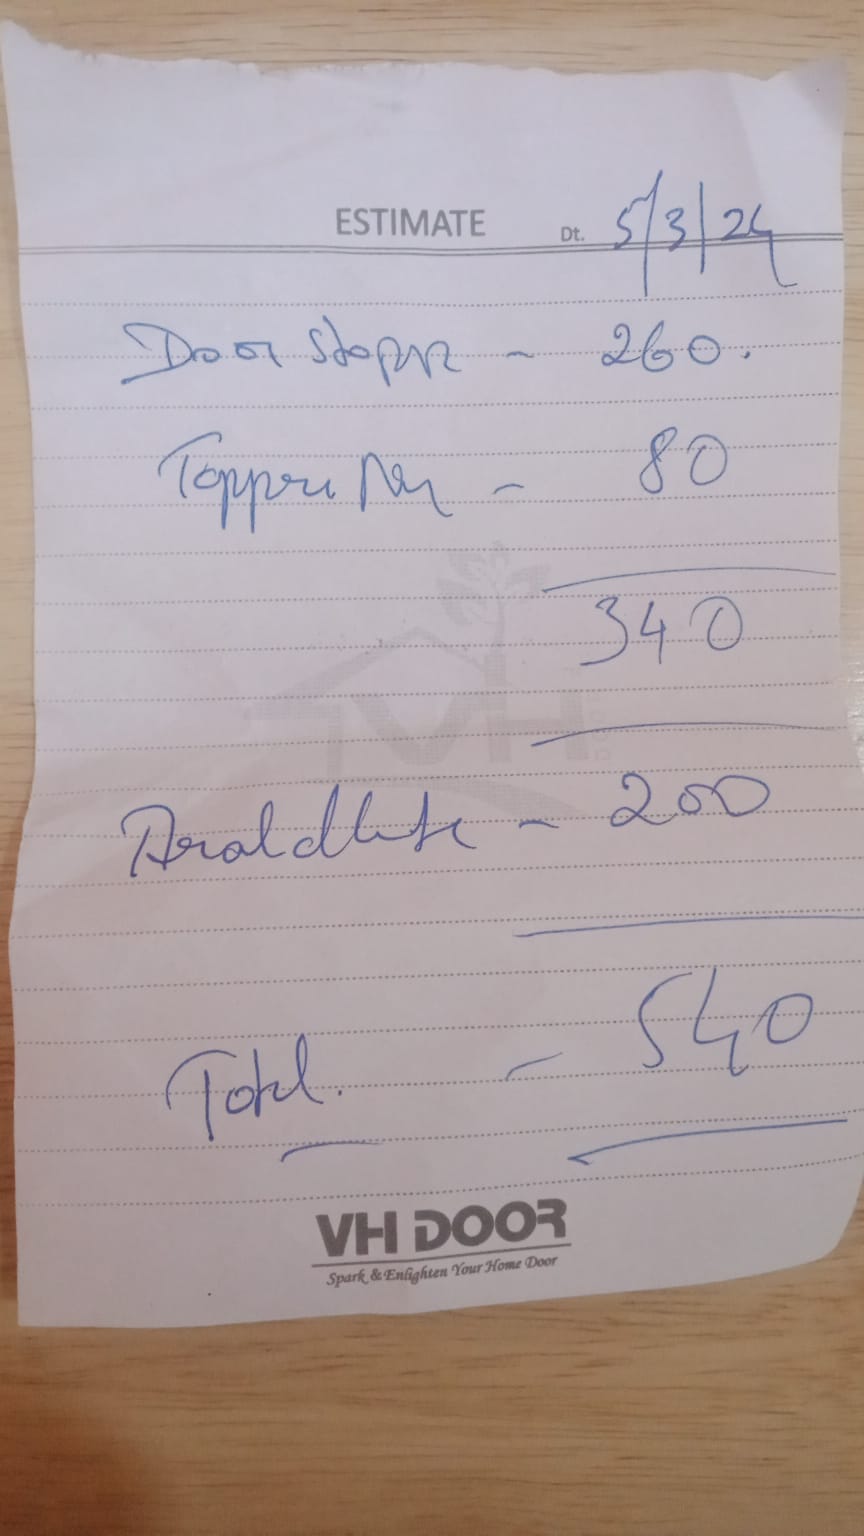 ESTIMATE Dt. 5/3/24
Door stopper - 260.
Tapper - 80
340
Araldite - 200
540
Total. - 540
VH DOOR
Spark & Enlighten Your Home Door